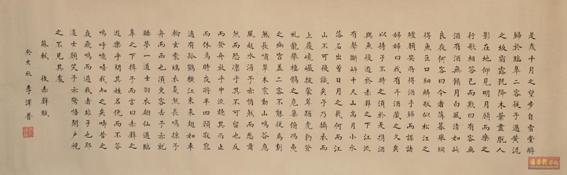 是歲十月之望步自雪堂將
歸於臨皋二客從予過黃泥
之坂霜露既降木葉盡脫人
影在地仰見明月顧而樂之
行歌相答已而歎曰有客無
酒有酒無肴月白風清如此
良夜何客曰今者薄暮舉網
得魚巨口細鱗狀似松江之
鱸顧安所得酒乎歸而謀諸
婦婦曰我有斗酒藏之久矣
以待子不時之須於是攜酒
與魚復遊於赤壁之下江流
有聲斷岸千尺山高月小水
落石出曾日月之幾何而江
山不可復識矣予乃攝衣而
上履巉巖披蒙茸踞虎豹登
虬龍攀棲鶻之危巢俯馮夷
之幽宮蓋二客不能從焉劃
然長嘯草木震動山鳴谷應
風起水湧予亦悄然而悲肅
然而恐凜乎其不可留也反
而登舟放乎中流聽其所止
而休焉時夜將半四顧寂寥
適有孤鶴橫江東來翅如車
輪玄裳縞衣戛然長鳴掠予
舟而西也須臾客去予亦就
睡夢一道士羽衣蹁躚過臨
皋之下揖予而言曰赤壁之
遊樂乎問其姓名俛而不答
嗚呼噫嘻我知之矣疇昔之
夜飛鳴而過我者非子也耶
道士顧笑予亦驚悟開戶視
之不見其處
蘇軾 後赤壁賦